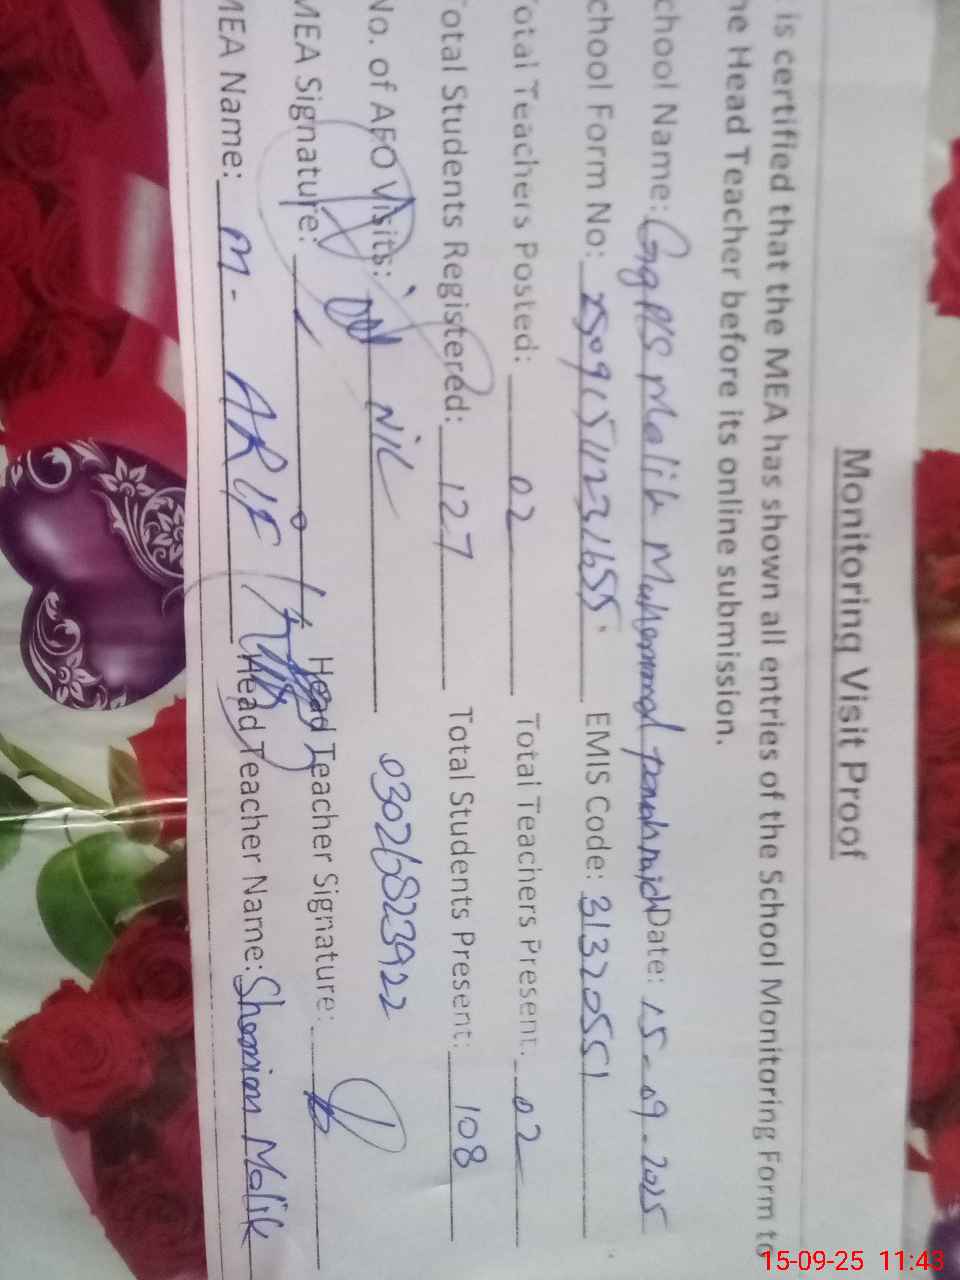 Monitoring Visit Proof
is certified that the MEA has shown all entries of the School Monitoring Form to
he Head Teacher before its online submission.
chool Name: GgPS Malik Muhammad Date: 15-09-2025
chool Form No: 25091511231655 EMIS Code: 31320551
otal Teachers Posted: 02 Total Teachers Present: 02
Total Students Registered: 127 Total Students Present: 108
No. of AEO Visits: NIL 03026823922
MEA Signature: Head Teacher Signature:
MEA Name: M. ARIF Head Teacher Name: Malik
15-09-25 11:43